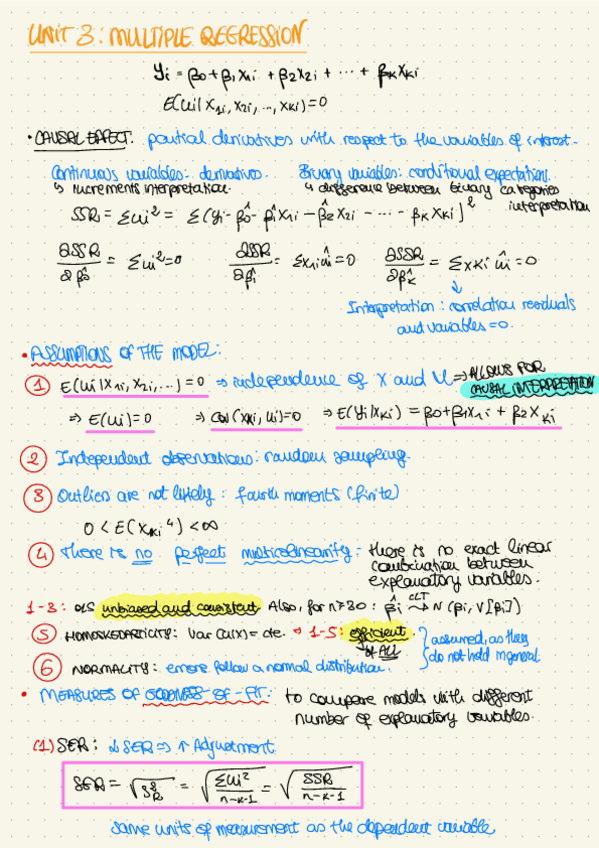 UNIT 3: MULTIPLE REGRESSION
Yi = β0 + β1 X1i + β2 X2i + ... + βK XKi
E(ui | X1i, X2i, ..., XKi) = 0
• CAUSAL EFFECT: partial derivatives with respect to the variables of interest.
Continuous variables: derivatives. Binary variables: conditional expectation.
↳ increments interpretation. ↳ difference between binary categories interpretation
SSR = Σ ûi² = Σ (Yi - β̂0 - β̂1 X1i - β̂2 X2i - ... - βK XKi]²
∂SSR/∂β̂0 = Σ ui² = 0 ∂SSR/∂β̂1 = Σ X1i ûi = 0 ∂SSR/∂β̂K = Σ XKi ûi = 0
↓
Interpretation: correlation residuals
and variables = 0.
• ASSUMPTIONS OF THE MODEL:
① E(ui | X1i, X2i, ...) = 0 ⇒ independence of X and U ⇒ ALLOWS FOR CAUSAL INTERPRETATION
⇒ E(ui) = 0 ⇒ Cov(XKi, ui) = 0 ⇒ E(Yi | XKi) = β0 + β1 X1i + β2 XKi
② Independent observations: random sampling.
③ Outliers are not likely: fourth moments (finite)
0 < E(XKi⁴) < ∞
④ There is no perfect multicolinearity: there is no exact linear
combination between
explanatory variables.
1-3: OLS unbiased and consistent. Also, for n≥30: β̂i →CLT N(βi, V[βi])
⑤ HOMOSKEDASTICITY: Var(u|X) = cte. ⇒ 1-5: efficient of ALL } assumed, as they
⑥ NORMALITY: errors follow a normal distribution. do not hold in general
• MEASURES OF GOODNESS-OF-FIT: to compare models with different
number of explanatory variables.
(1) SER: ↓ SER ⇒ ↑ Adjustment
SER = √S²R = √(Σ ui² / n-k-1) = √(SSR / n-k-1)
same units of measurement as the dependent variable